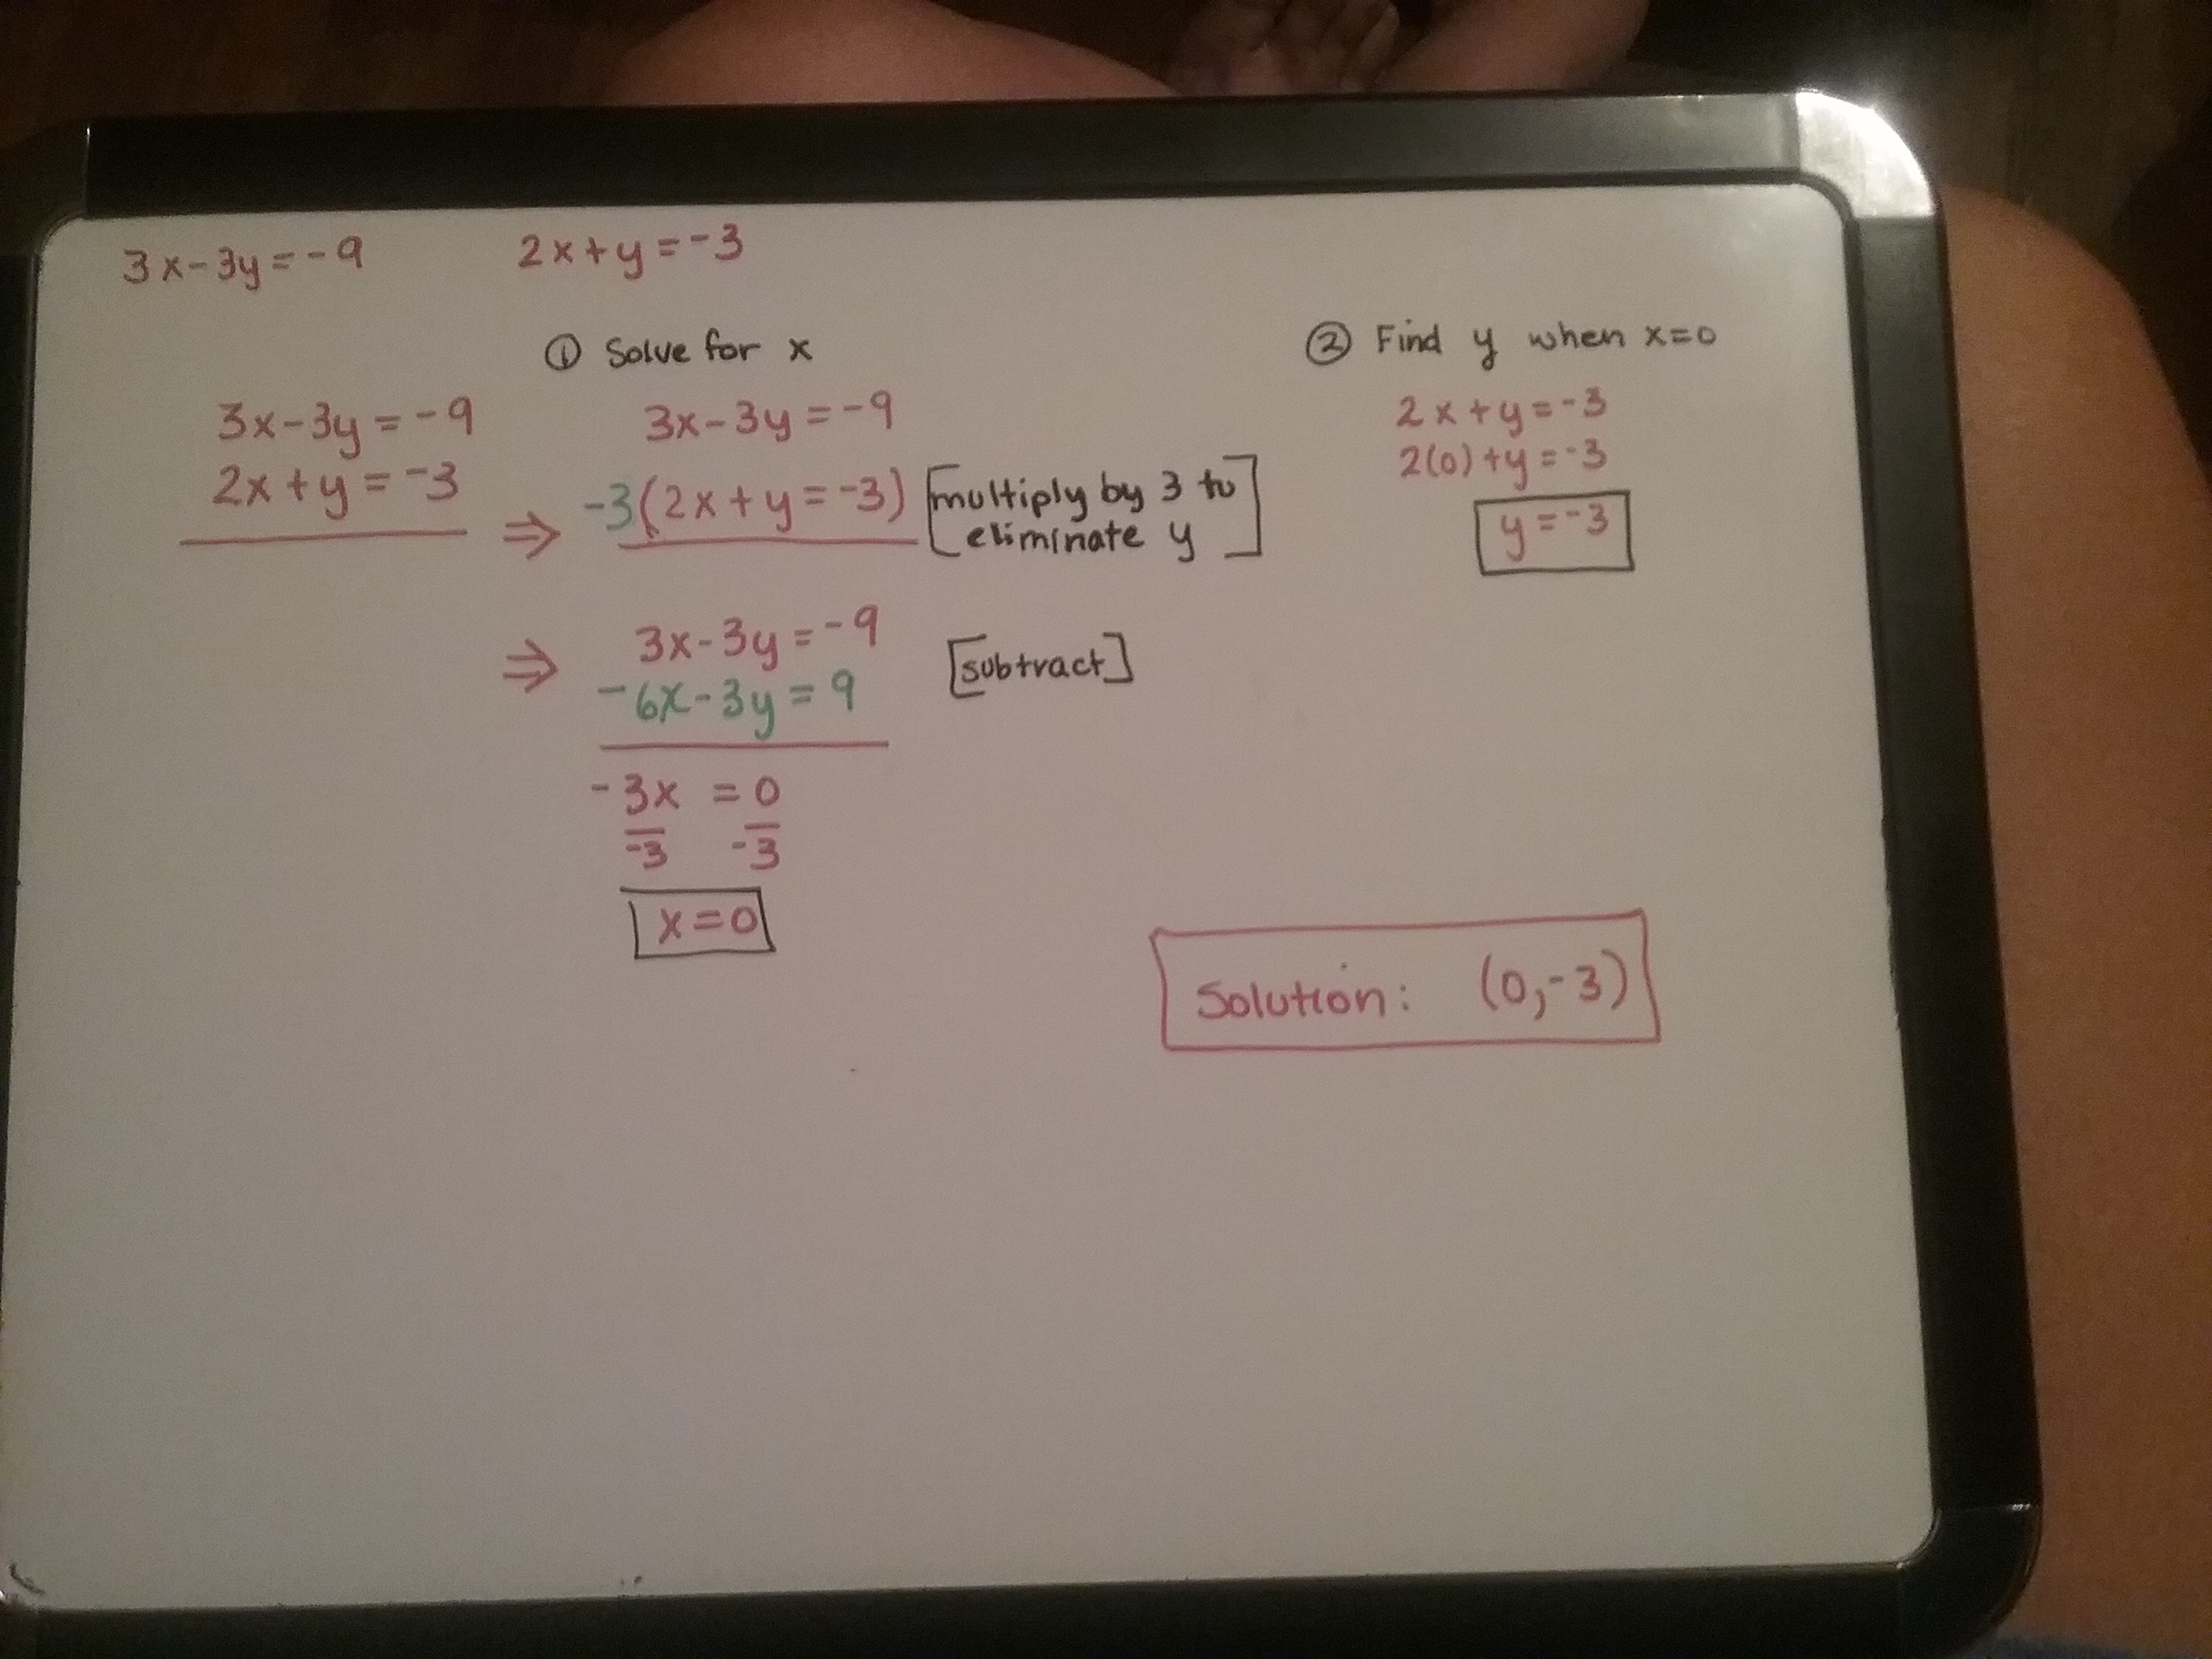 3x-3y=-9 2x+y=-3
① Solve for x
3x-3y=-9
2x+y=-3
3x-3y=-9
⇒ -3(2x+y=-3) [multiply by 3 to
eliminate y]
⇒ 3x-3y=-9 [subtract]
-6x-3y=9
-3x =0
-3 -3
x=0
② Find y when x=0
2x+y=-3
2(0)+y=-3
y=-3
Solution: (0,-3)